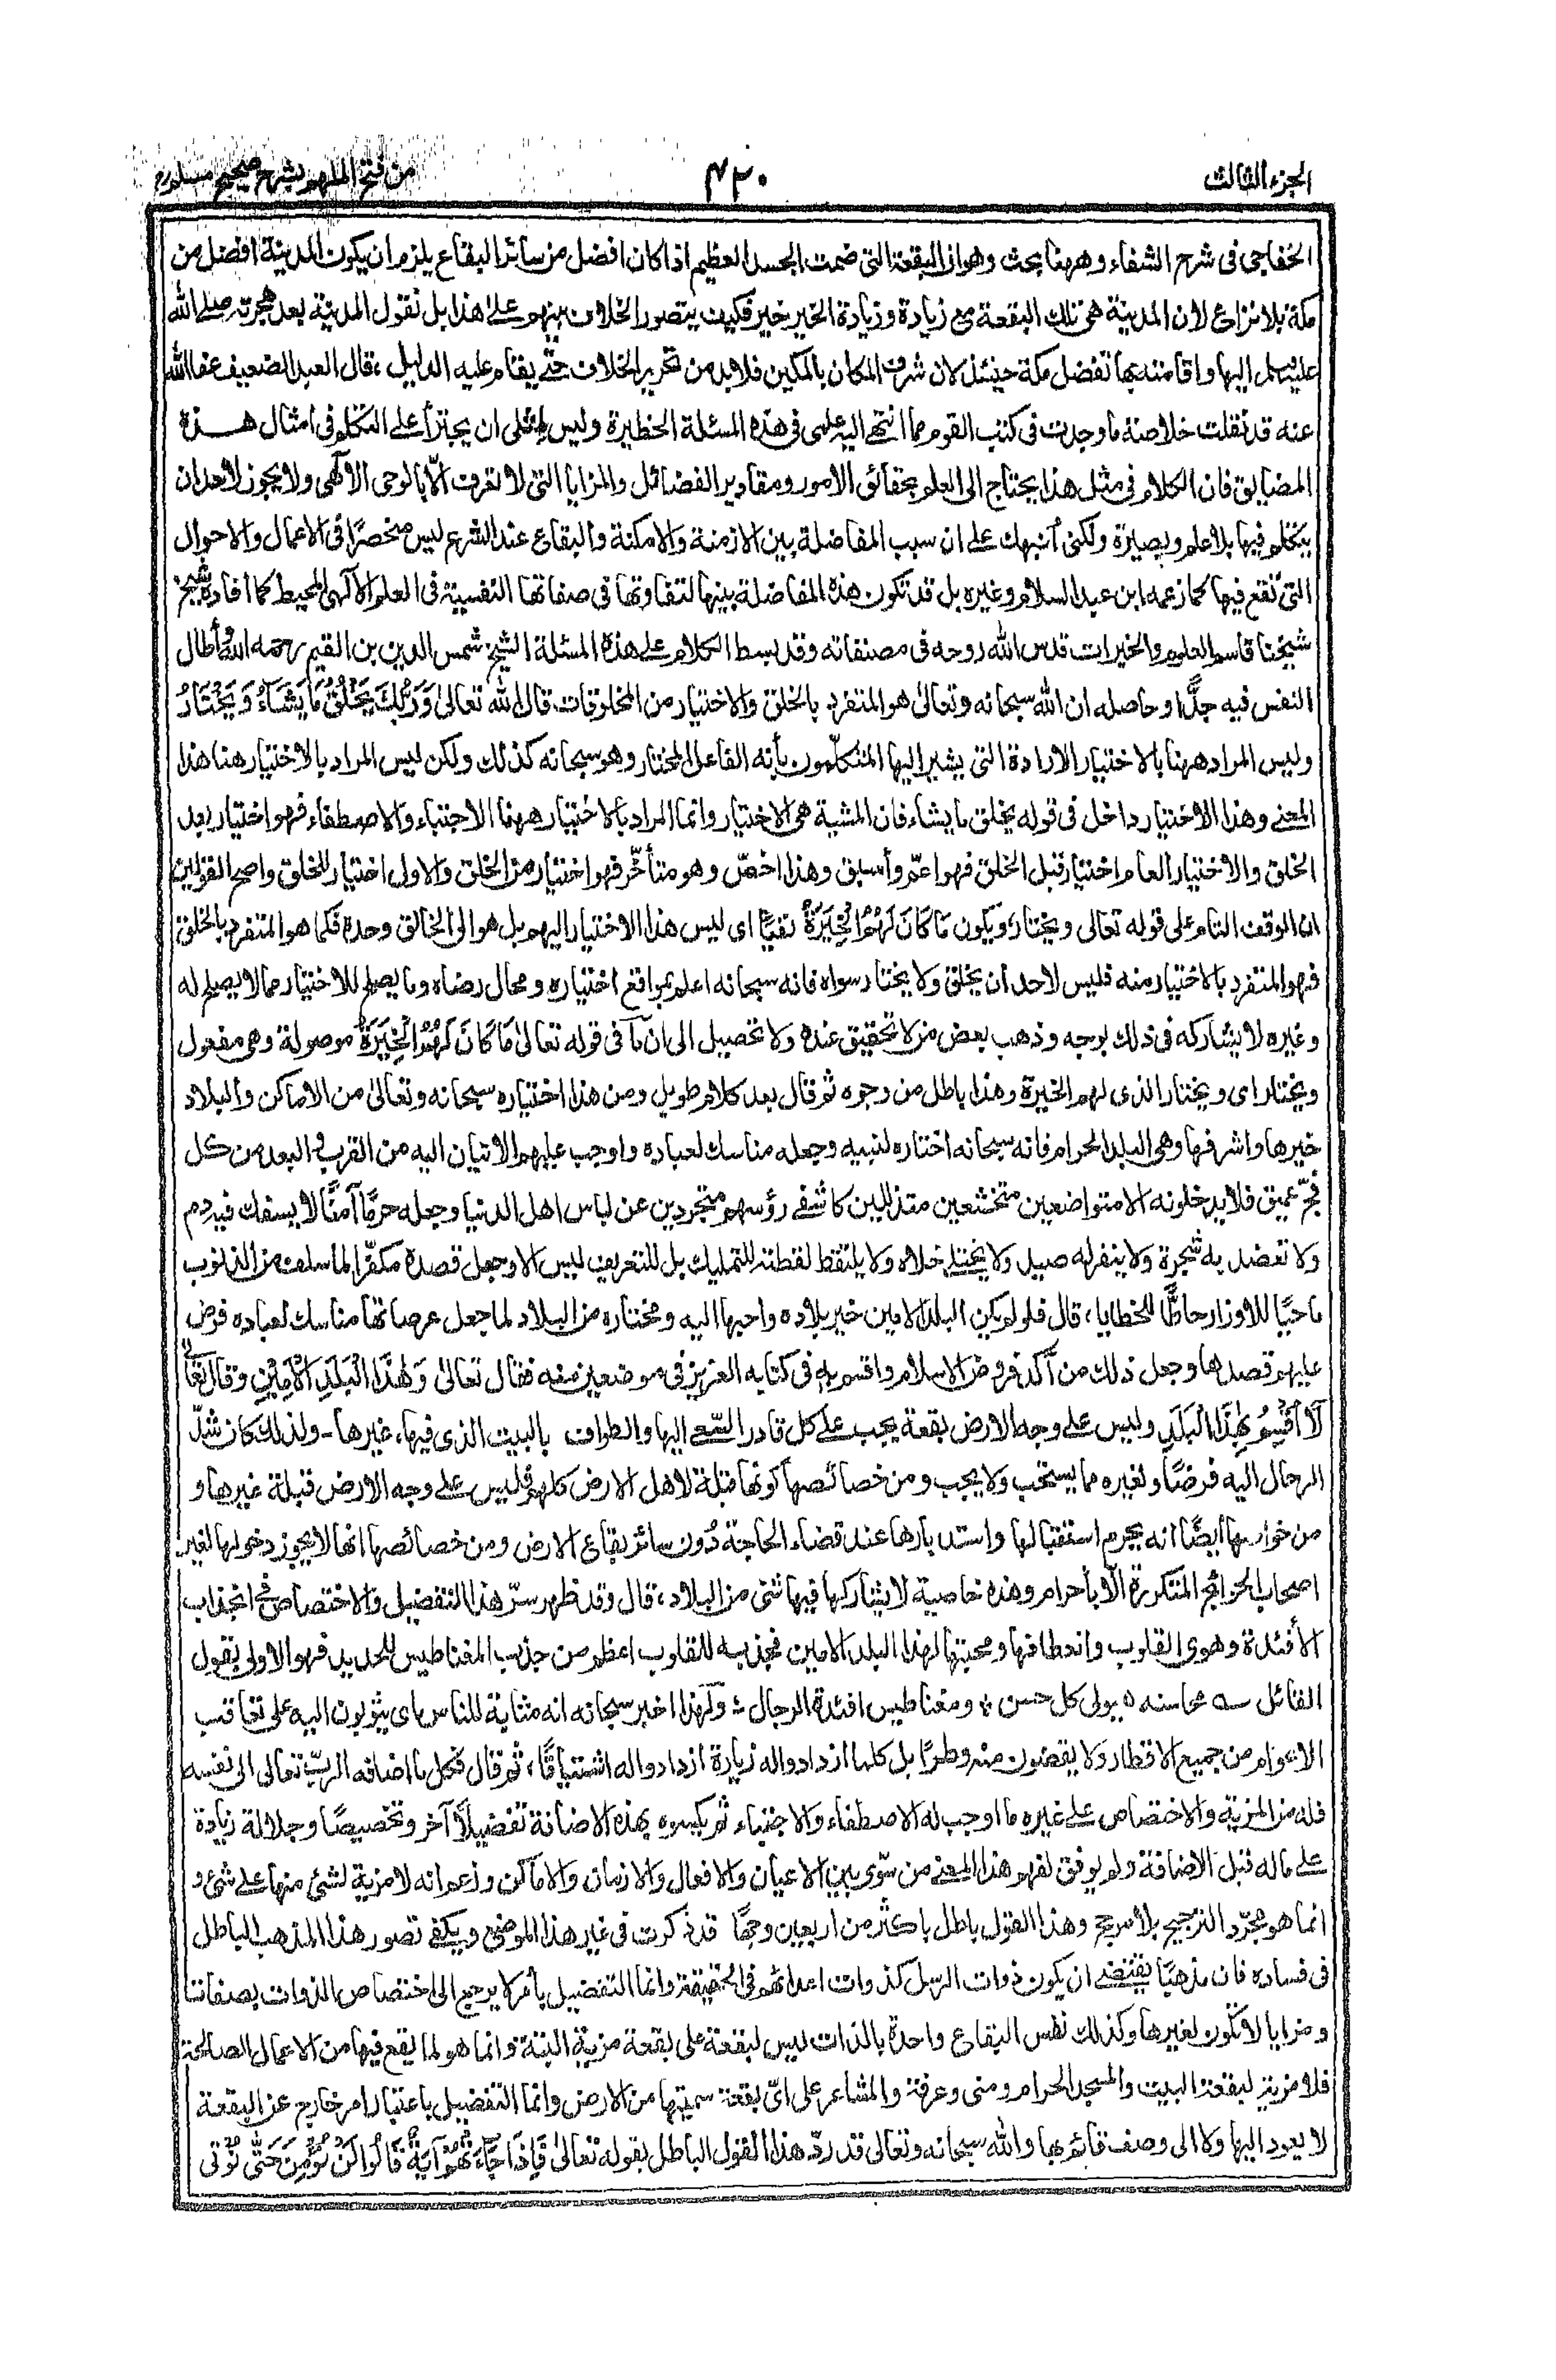 الجزء الثالث
۴۲۰
من فتح الملهم بشرح صحيح مسلم
الخفاجى فى شرح الشفاء وههنا بحث وهو ان البقعة التى ضمت الجسد العظيم اذا كان افضل من سائر البقاع يلزم ان يكون المدينة افضل من
مكة بلا نزاع لان المدينة هى تلك البقعة مع زيادة وزيادة الخير خير فكيف يتصور الخلاف بينهم على هذا بل نقول المدينة بعد هجرته صلى الله
عليه وسلم اليها واقامته بها تفضل مكة حينئذ لان شرف المكان بالمكين فلا بد من تحرير الخلاف حتى يقام عليه الدليل، قال العبد الضعيف عفا الله
عنه قد نقلت خلاصة ما وجدت فى كتب القوم مما انتهى اليه علمى فى هذه المسئلة الخطيرة وليس لمثلى ان يجترأ على التكلم فى امثال هذه
المضايق فان الكلام فى مثل هذا يحتاج الى العلم بحقائق الامور ومقادير الفضائل والمزايا التى لا تعرف الّا بالوحى الآلهى ولا يجوز لاحد ان
يتكلم فيها بلا علم وبصيرة ولكنى أنبهك على ان سبب المفاضلة بين الازمنة والامكنة والبقاع عند الشرع ليس منحصرًا فى الاعمال والاحوال
التى تقع فيها كما زعمه ابن عبد السلام وغيره بل قد تكون هذه المفاضلة بينها لتفاوتها فى صفاتها النفسية فى العلم الآلهى المحيط كما افاده شيخ
شيخنا قاسم العلوم والخيرات قدس الله روحه فى مصنفاته وقد بسط الكلام على هذه المسئلة الشيخ شمس الدين بن القيم رحمه الله وأطال
النفس فيه جدًّا وحاصله ان الله سبحانه وتعالىٰ هو المتفرد بالخلق والاختيار من المخلوقات قال الله تعالىٰ وَرَبُّكَ يَخْلُقُ مَا يَشَاءُ وَيَخْتَارُ
وليس المراد ههنا بالاختيار الارادة التى يشير اليها المتكلّمون بأنه الفاعل المختار وهو سبحانه كذلك ولكن ليس المراد بالاختيار هنا هذا
المعنى وهذا الاختيار داخل فى قوله يخلق ما يشاء فان المشية هى الاختيار وانما المراد بالاختيار ههنا الاجتباء والاصطفاء فهو اختيار بعد
الخلق والاختيار العام اختيار قبل الخلق فهو اعمّ وأسبق وهذا اخصّ وهو متأخّر فهو اختيار من الخلق والاول اختيار للخلق واصح القولين
ان الوقف التام على قوله تعالى ويختار، ويكون مَا كَانَ لَهُمُ الْخِيَرَةُ نفيًا اى ليس هذا الاختيار اليهم بل هو الى الخالق وحده فكما هو المتفرد بالخلق
فهو المتفرد بالاختيار منه فليس لاحد أن يخلق ولا يختار سواه فانه سبحانه اعلم بمواقع اختياره ومحال رضاه وما يصلح للاختيار مما لا يصلح له
وغيره لا يشاركه فى ذلك بوجه وذهب بعض من لا تحقيق عنده ولا تحصيل الى ان مآ فى قوله تعالىٰ مَا كَانَ لَهُمُ الْخِيَرَةُ موصولة وهى مفعول
ويختار اى ويختار الذى لهم الخيرة وهذا باطل من وجوه ثم قال بعد كلام طويل ومن هذا اختياره سبحانه وتعالىٰ من الاماكن والبلاد
خيرها واشرفها وهى البلد الحرام فانه سبحانه اختاره لنبيه وجعله مناسك لعباده واوجب عليهم الاتيان اليه من القرب والبعد من كل
فجّ عميق فلا يدخلونه الا متواضعين متخشعين متذللين كاشفى رؤسهم متجردين عن لباس اهل الدنيا وجعله حرمًا آمنًا لا يسفك فيه دم
ولا تعضد به شجرة ولا ينفر له صيد ولا يختلى خلاه ولا يلتقط لقطته للتمليك بل للتعريف ليس الا وجعل قصده مكفّرا لما سلف من الذنوب
ماحيًا للاوزار حاطًّا للخطايا، قال فلو لم يكن البلد الامين خير بلاده واحبها اليه ومختاره من البلاد لما جعل عرصاتها مناسك لعباده فرض
عليهم قصدها وجعل ذلك من آكد فروض الاسلام واقسم به فى كتابه العزيز فى موضعين منه فقال تعالىٰ وَهٰذَا الْبَلَدِ الْأَمِيْنِ وقال تعالىٰ
لَآ اُقْسِمُ بِهٰذَا الْبَلَدِ وليس على وجه الارض بقعة يجب على كل قادر السّعى اليها والطواف بالبيت الذى فيها، غيرها ـ ولذلك كان شدّ
الرحال اليه فرضًا ولغيره مما يستحب ولا يجب ومن خصائصها كونها قبلة لاهل الارض كلهم فليس على وجه الارض قبلة غيرها و
من خواصها ايضًا انه يحرم استقبالها واستدبارها عند قضاء الحاجة دُون سائر بقاع الارض ومن خصائصها انها لا يجوز دخولها لغير
اصحاب الحوائج المتكررة الّا بأحرام وهذه خاصية لا يشاركها فيها شئ من البلاد، قال وقد ظهر سرّ هذا التفضيل والاختصاص فى انجذاب
الأفئدة وهوى القلوب وانعطافها ومحبتها لهذا البلد الامين فجذبه للقلوب اعظم من جذب المغناطيس للحديد فهو الاولى بقول
القائل ؎ محاسنه هيولى كل حسن ؞ ومغناطيس افئدة الرجال ؞ ولهذا اخبر سبحانه انه مثابة للناس اى يثوبون اليه على تعاقب
الاعوام من جميع الاقطار ولا يقضون منه وطرًا بل كلما ازدادوا له زيارة ازدادوا له اشتياقًا، ثم قال فكل ما اضافه الربّ تعالى الى نفسه
فله من المزية والاختصاص على غيره ما اوجب له الاصطفاء والاجتباء ثم يكسوه بهذه الاضافة تفضيلًا آخر وتخصيصًا وجلالة زيادة
على ماله قبل الاضافة ولم يوفق لفهم هذا المعنى من سوّى بين الاعيان والافعال والازمان والاماكن وزعم انه لا مزية لشئ منها على شئ و
انما هو مجرّد الترجيح بلا مرجح وهذا القول باطل باكثر من اربعين وجهًا قد ذكرت فى غير هذا الموضع ويكفى تصور هذا المذهب الباطل
فى فساده فان مذهبًا يقتضى ان يكون ذوات الرسل كذوات اعدائهم فى الحقيقة وانما التفضيل بأمر لا يرجع الى اختصاص الذوات بصفاتنا
ومزايا لا تكون لغيرها وكذلك نفس البقاع واحدة بالذات ليس لبقعة على بقعة مزية البتة وانما هو لما يقع فيها من الاعمال الصالحة
فلا مزية لبقعة البيت والمسجد الحرام ومنى وعرفة والمشاعر على اىّ بقعة سميتها من الارض وانما التفضيل باعتبار امر خارج عن البقعة
لا يعود اليها ولا الى وصف قائم بها والله سبحانه وتعالى قد ردّ هذا القول الباطل بقوله تعالىٰ فَإِذَا جَآءَتْهُمْ آيَةٌ قَالُوا لَنْ نُؤْمِنَ حَتَّى نُؤْتى